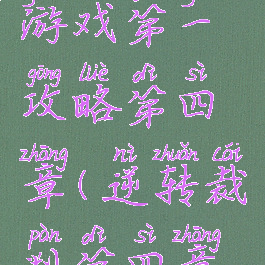 游戏第一
gōng lüè dì sì
攻略第四
zhāng nì zhuǎn cái
章(逆转裁
pàn dì sì zhāng
判第四章